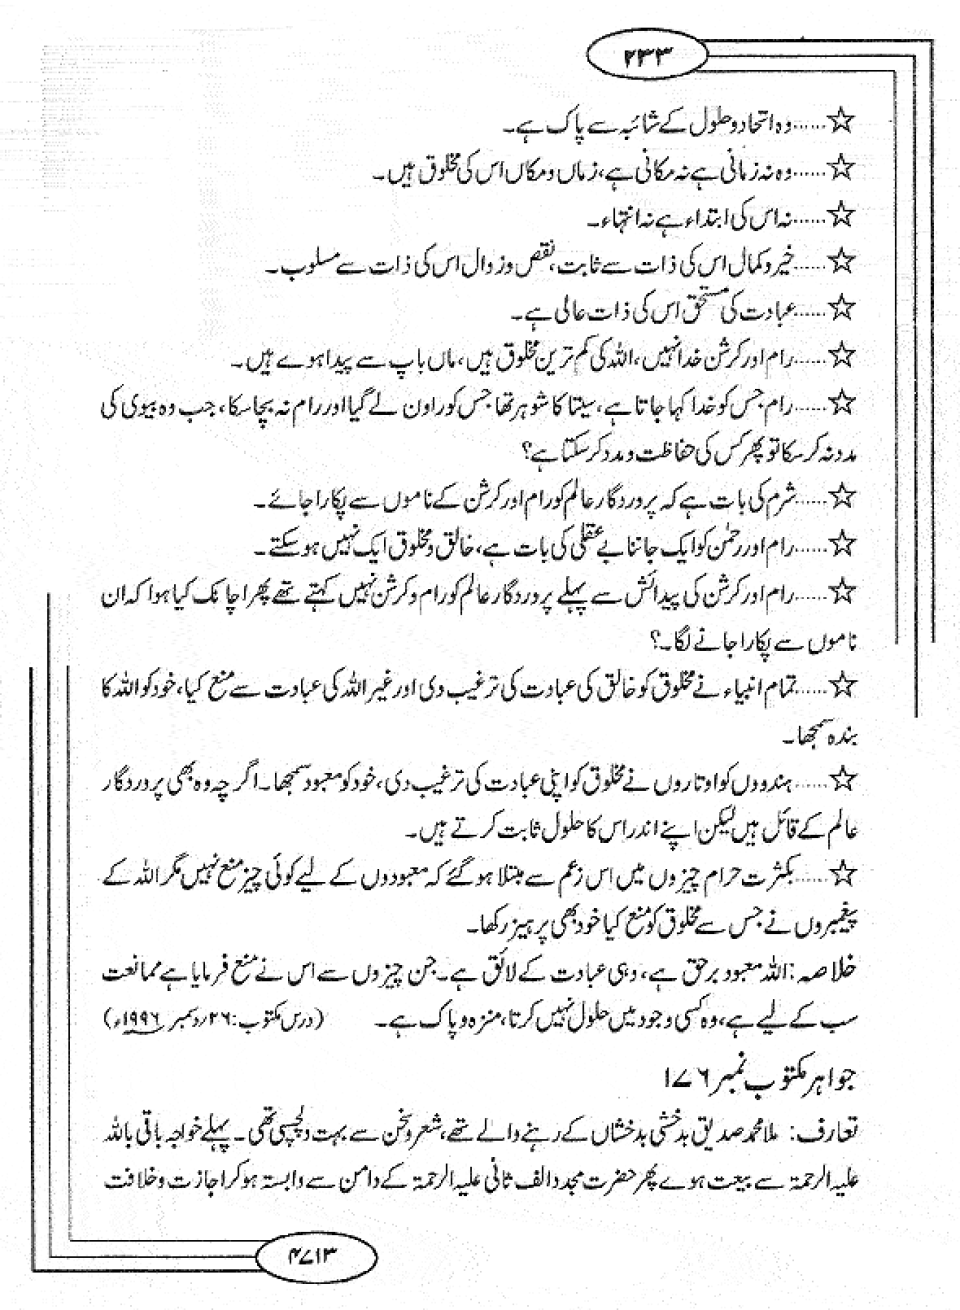 ۲۳۳
☆......وہ اتحاد و حلول کے شائبہ سے پاک ہے۔
☆......وہ نہ زمانی ہے نہ مکانی ہے، زماں و مکاں اس کی مخلوق ہیں۔
☆......نہ اس کی ابتداء ہے نہ انتہاء۔
☆......خیر و کمال اس کی ذات سے ثابت، نقص و زوال اس کی ذات سے مسلوب۔
☆......عبادت کی مستحق اس کی ذات عالی ہے۔
☆......رام اور کرشن خدا نہیں، اللہ کی کم ترین مخلوق ہیں، ماں باپ سے پیدا ہوے ہیں۔
☆......رام جس کو خدا کہا جاتا ہے، سیتا کا شوہر تھا جس کو راون لے گیا اور رام نہ بچا سکا، جب وہ بیوی کی
مدد نہ کر سکا تو پھر کس کی حفاظت و مدد کر سکتا ہے؟
☆......شرم کی بات ہے کہ پروردگار عالم کو رام اور کرشن کے ناموں سے پکارا جائے۔
☆......رام اور رحمٰن کو ایک جاننا بے عقلی کی بات ہے، خالق و مخلوق ایک نہیں ہو سکتے۔
☆......رام اور کرشن کی پیدائش سے پہلے پروردگار عالم کو رام و کرشن نہیں کہتے تھے پھر اچانک کیا ہوا کہ ان
ناموں سے پکارا جانے لگا۔؟
☆......تمام انبیاء نے مخلوق کو خالق کی عبادت کی ترغیب دی اور غیر اللہ کی عبادت سے منع کیا، خود کو اللہ کا
بندہ سمجھا۔
☆......ہندووں کو اوتاروں نے مخلوق کو اپنی عبادت کی ترغیب دی، خود کو معبود سمجھا۔ اگر چہ وہ بھی پروردگار
عالم کے قائل ہیں لیکن اپنے اندر اس کا حلول ثابت کرتے ہیں۔
☆......بکثرت حرام چیزوں میں اس زعم سے مبتلا ہو گئے کہ معبودوں کے لیے کوئی چیز منع نہیں مگر اللہ کے
پیغمبروں نے جس سے مخلوق کو منع کیا خود بھی پرہیز رکھا۔
خلاصہ: اللہ معبود برحق ہے، وہی عبادت کے لائق ہے۔ جن چیزوں سے اس نے منع فرمایا ہے ممانعت
سب کے لیے ہے، وہ کسی وجود میں حلول نہیں کرتا، منزہ و پاک ہے۔ (درس مکتوب: ۲۶/دسمبر ۱۹۹۶ء)
جواہر مکتوب نمبر ۱۷۶
تعارف: ملا محمد صدیق بدخشی بدخشاں کے رہنے والے تھے، شعر و سخن سے بہت دلچسپی تھی۔ پہلے خواجہ باقی باللہ
علیہ الرحمۃ سے بیعت ہوے پھر حضرت مجدد الف ثانی علیہ الرحمۃ کے دامن سے وابستہ ہو کر اجازت و خلافت
۴۷۱۳